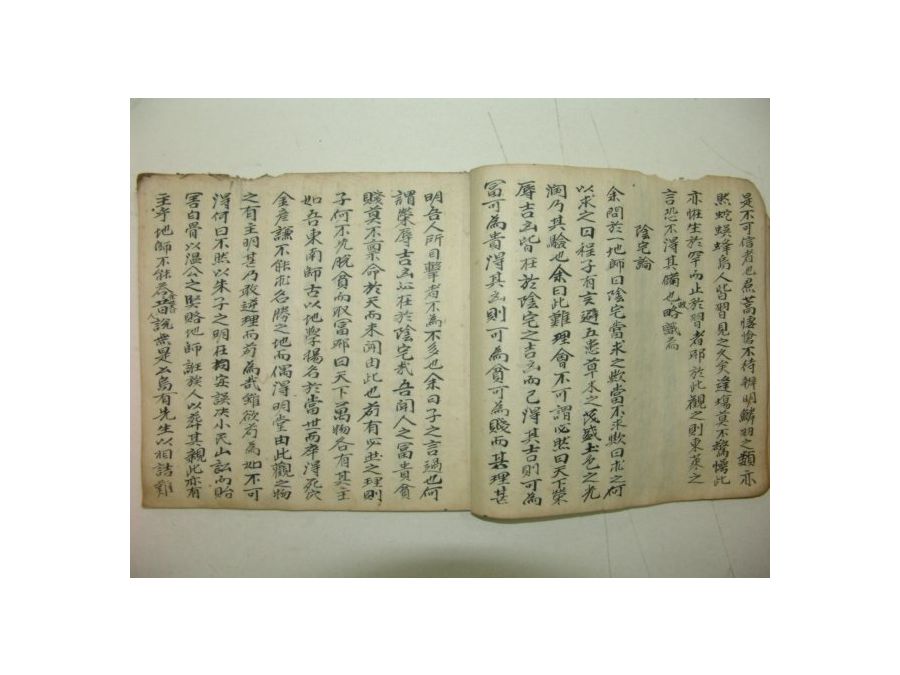 是不可信者也焄蒿悽愴不待辨明鱗羽之類亦
然蛇蜈蜂鳥人皆習見之久矣逢塲莫不驚懼此
亦恠生於罕而止於習者耶於此觀之則東萊之
言恐不得其備也故略識焉
陰宅論
余問於一地師曰陰宅當求之歟當不求歟曰求之何
以求之曰程子有言避五患草木之茂盛土色之光
潤乃其驗也余曰此難理會不可謂必然曰天下榮
辱吉凶皆在於陰宅之吉凶而已得其吉則可為
富可為貴得其凶則可為貧可為賤而其理甚
明吾人所目擊者不為不多也余曰子之言過也何
謂榮辱吉凶必在於陰宅哉吾聞人之富貴貧
賤莫不禀命於天而未聞由此也苟有必然之理則
子何不先脫貧而取富耶曰天下萬物各有其主
如吾東南師古以地學揚名於當世而卒得死穴
金彦謙不能求名勝之地而偶得明堂由此觀之物
之有主明甚乃敢逆理而苟為哉雖欲苟為如不可
得何曰不然以朱子之明在 誤决小民山訟而貽
害白骨以温公之賢賂地師誑族人以葬其親此亦有
主乎地師不能答 昔說無是公烏有先生以相詰難